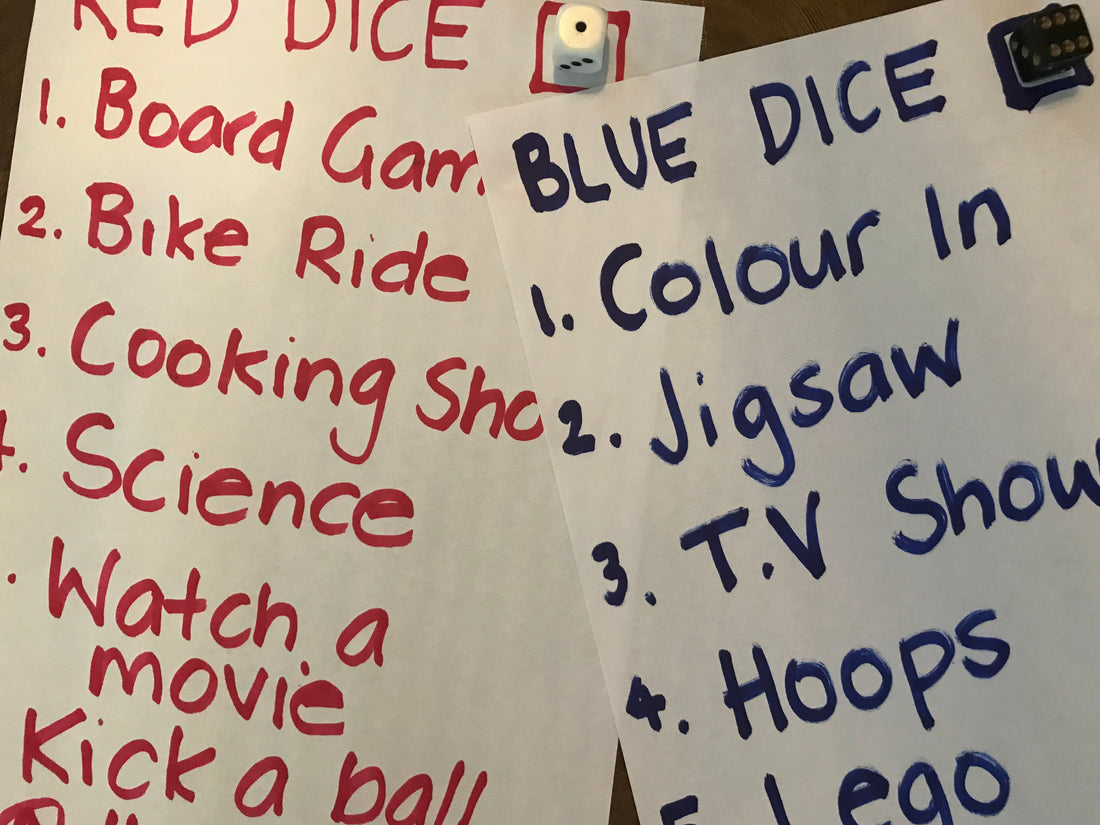 RED DICE
1. Board Gam
2. Bike Ride
3. Cooking Sho
4. Science
. Watch a
movie
Kick a ball
BLUE DICE
1. Colour In
2. Jigsaw
3. T.V Show
4. Hoops
5. Lego